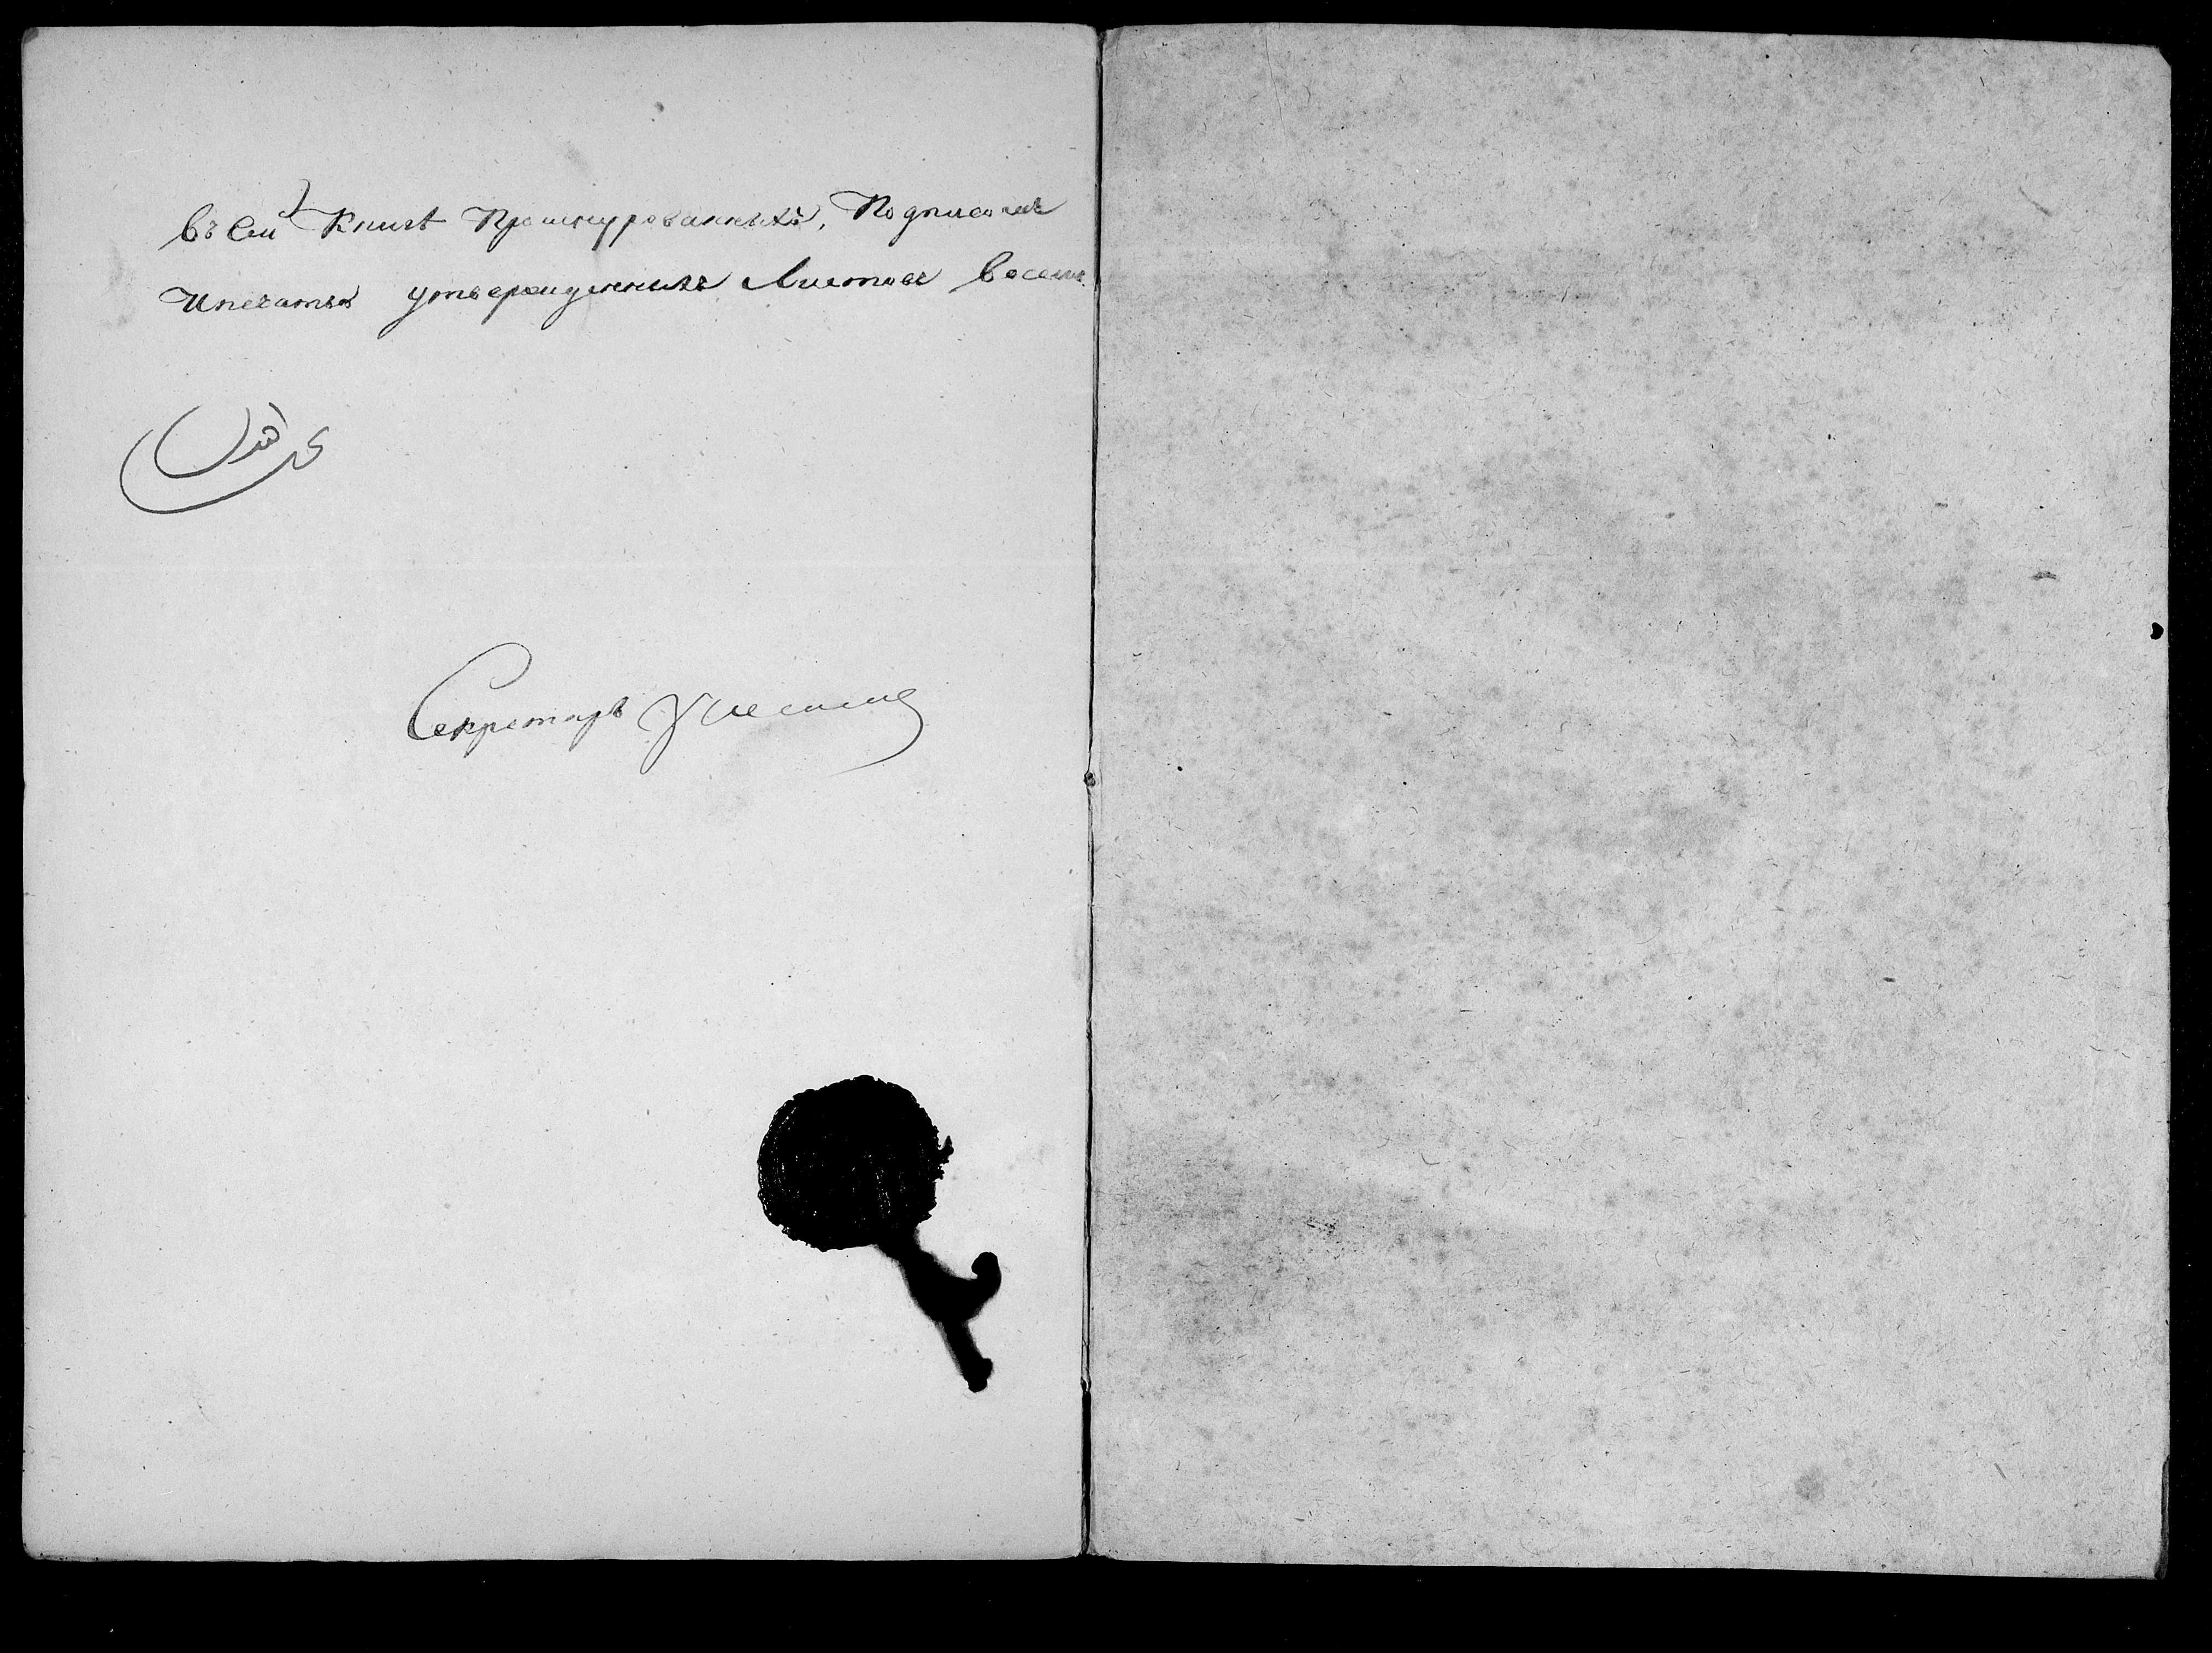 Въ сей Книгѣ Прошнурованныхъ, Подписомъ
И печатью утвержденныхъ Листовъ восемь
Секретарь